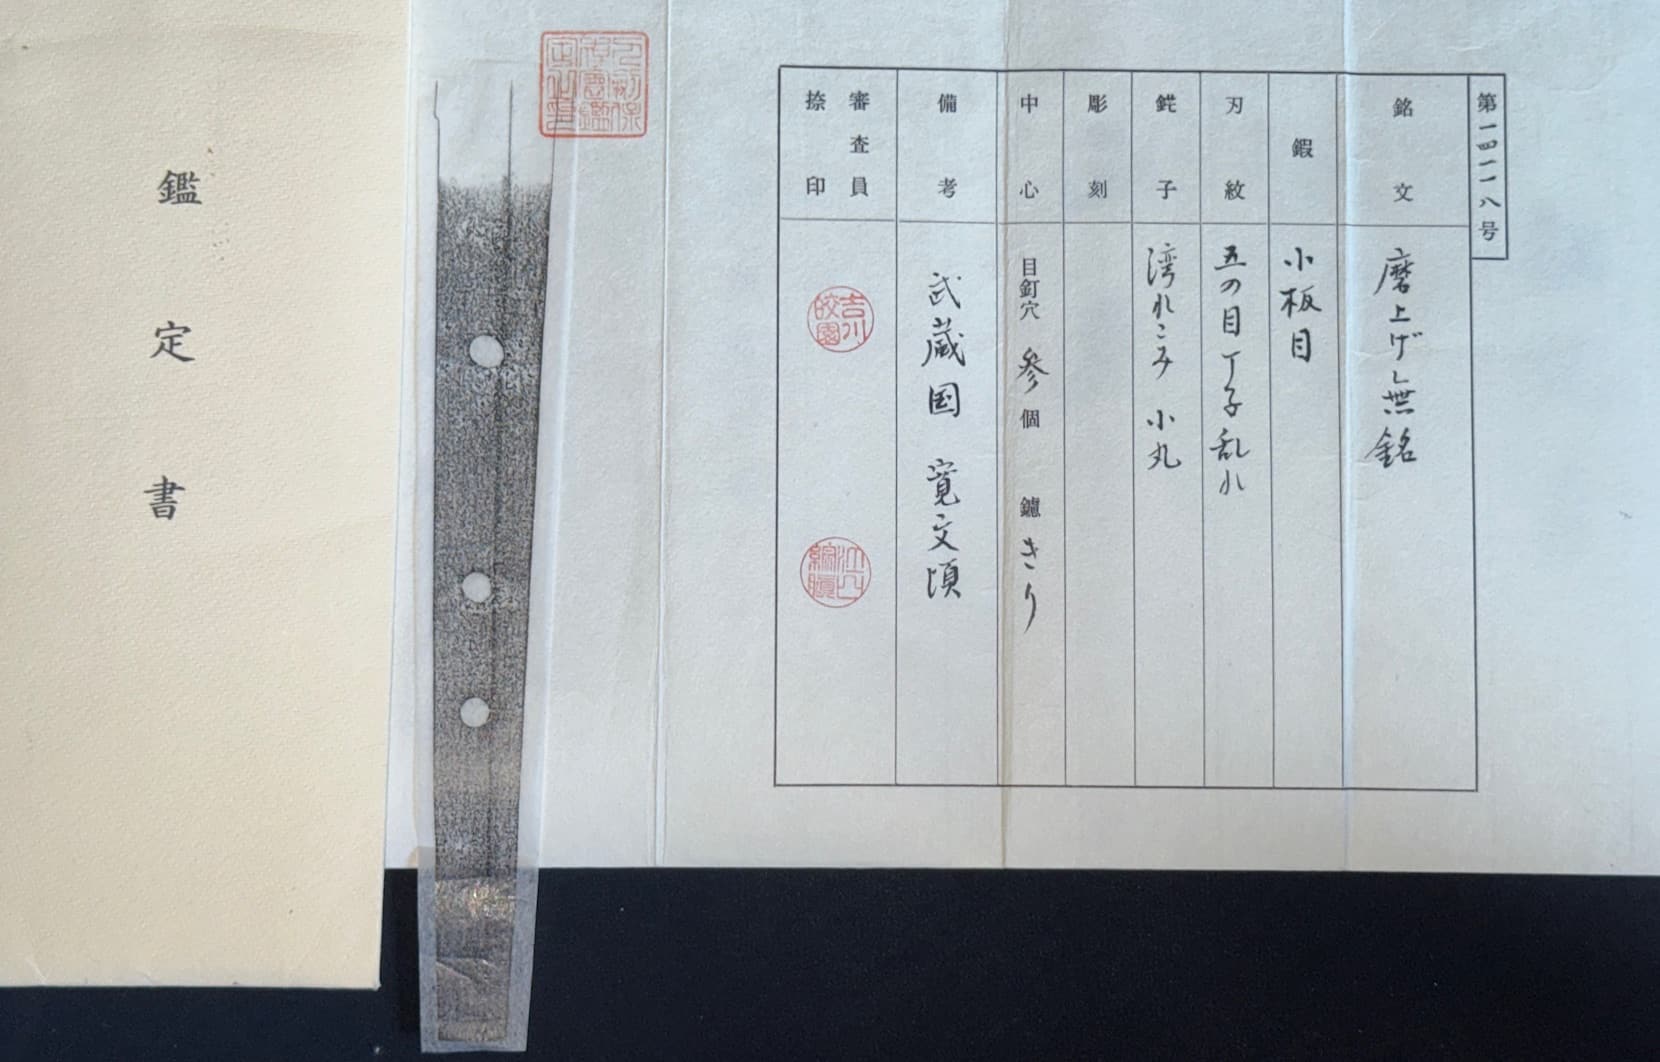 第一四一一八号
銘文
磨上げ無銘
鍜
小板目
刃紋
五の目丁子乱れ
鋩子
湾れこみ 小丸
彫刻
中心
目釘穴 参個 鑢 きり
備考
武蔵国 寛文頃
審査員
捺印
吉川
皎園
鑑定書